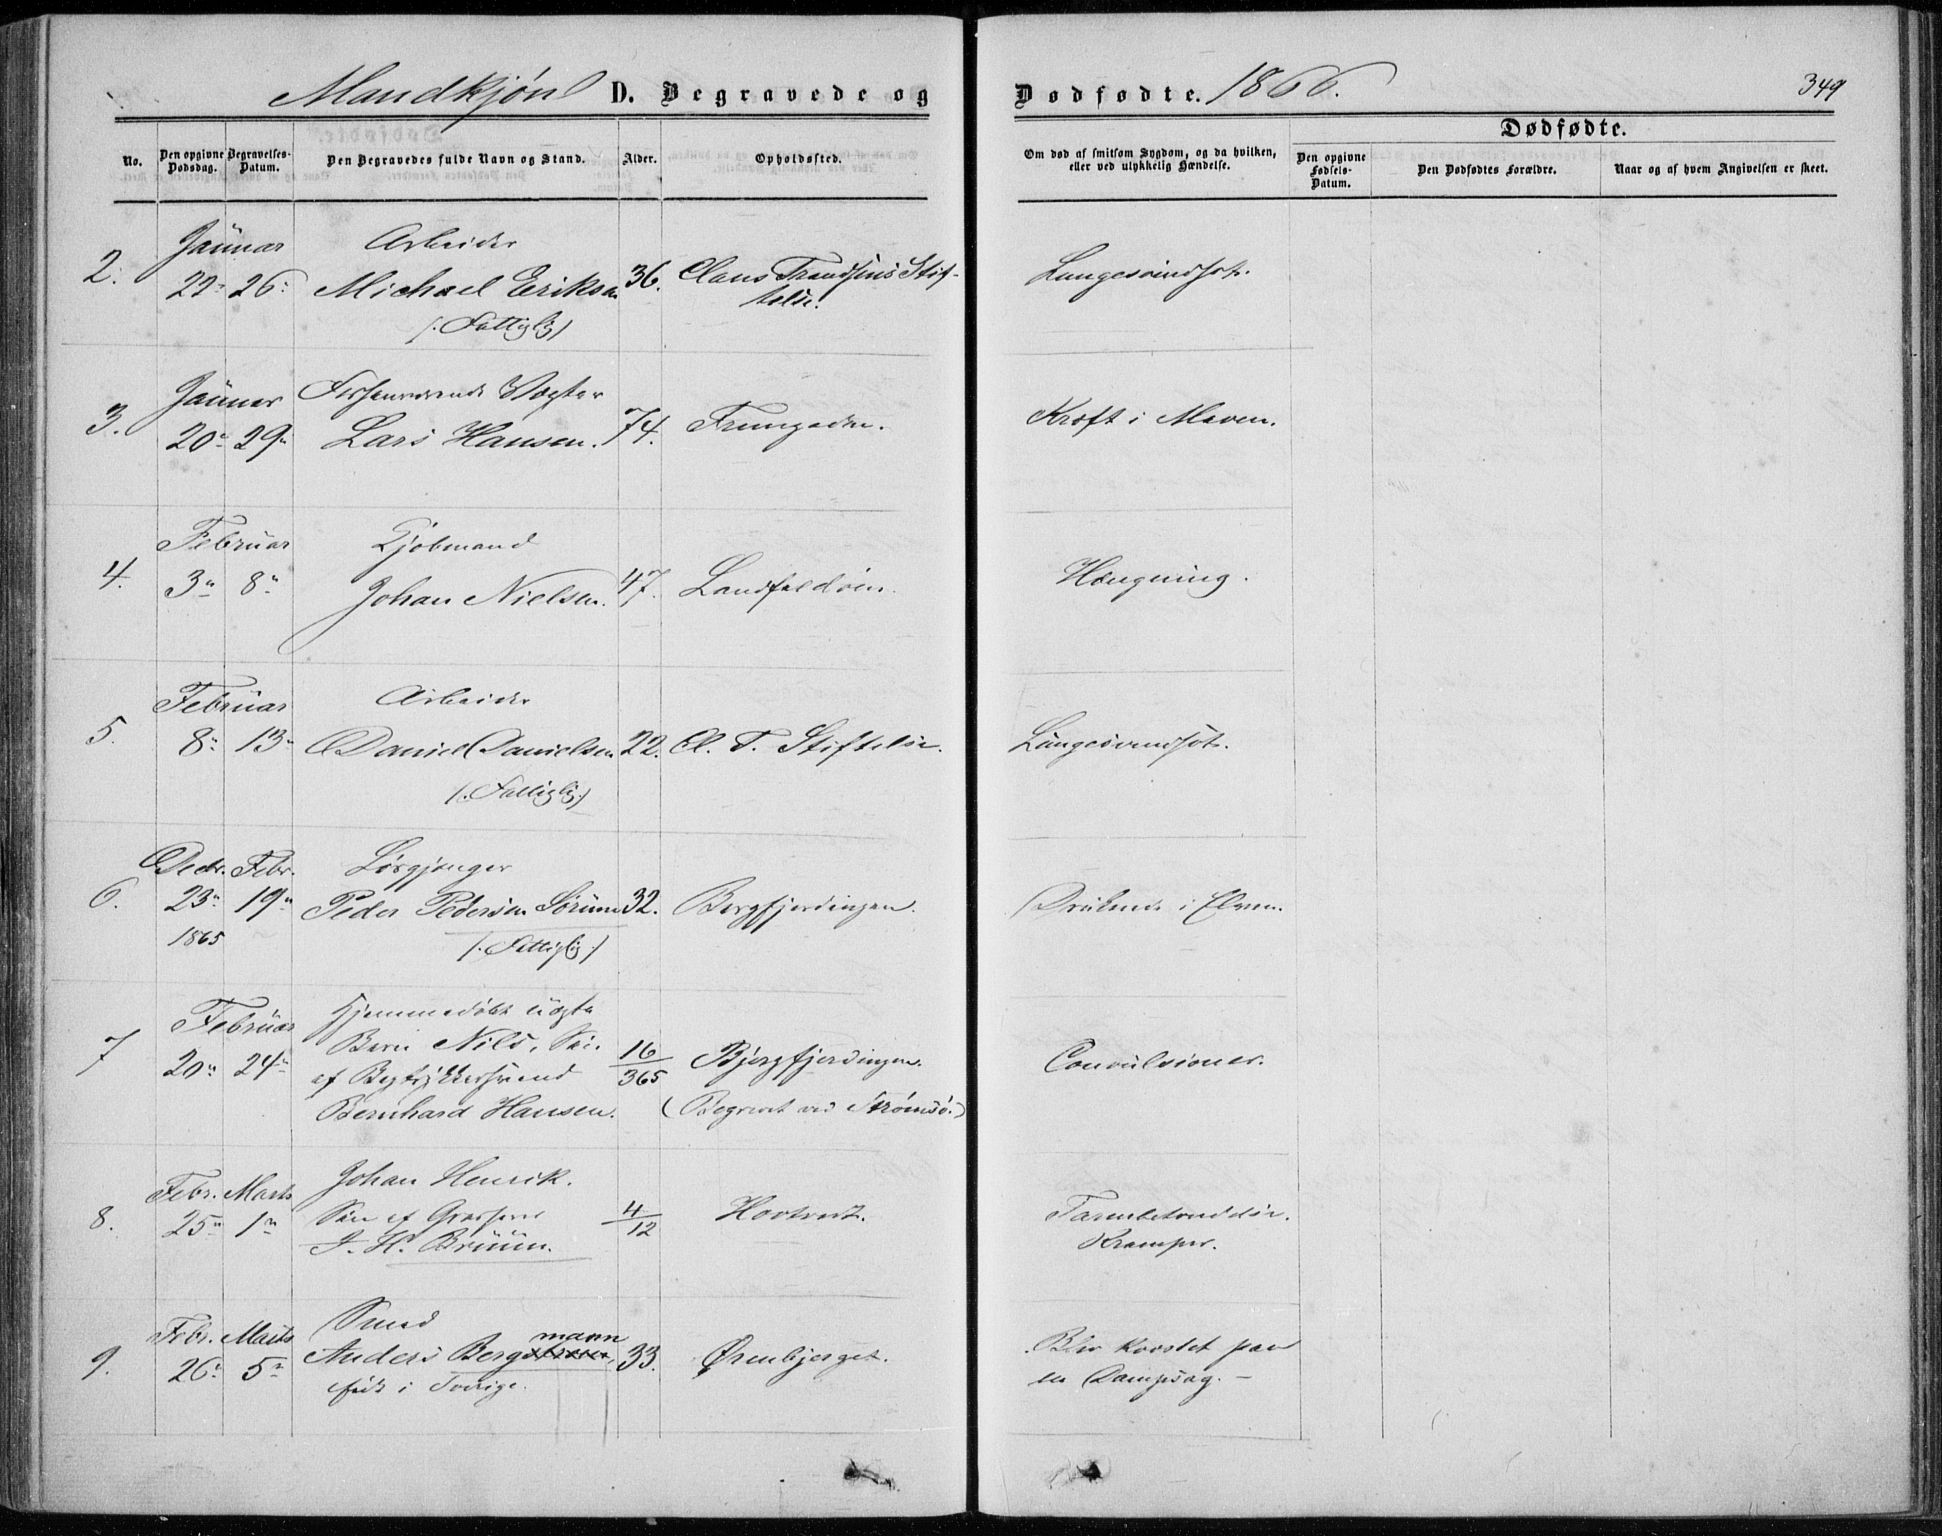 Mandkjøn D. Begravede og
Dødfødte. 1866.
349
No.
Den opgivne Dødsdag.
Begravelses-Datum.
Den Begravedes fulde Navn og Stand.
Alder.
Opholdssted.
Om død af smitsom Sygdom, og da hvilken,
eller ved ulykkelig Hændelse.
Dødfødte.
Den opgivne Fødsels-Datum.
Den Dødfødtes Forældre.
Naar og af hvem Angivelsen er skeet.
Januar Arbeider
2. 22 26 Michael Eriksen 36. Claus Trondsens Stif-
telse.
(Fattiglig)
Lungesvindsot.
Januar Forhenværende Vægter
3. 20 29 Lars Hansen. 74.
Kræft i Maven.
Februar Kjøbmand
4. 3 8 Johan Nielsen. 47. Landfaldøen.
Hængning.
Februar Arbeider
5. 8 13 Daniel Danielsen 22. Cl. T. Stiftelse.
(Fattiglig)
Lungesvindsot.
Decbr. Febr. Løsgjænger
6. 23 19 Peder Pedersen Sørum 32. Bergfjerdingen.
1865
(Fattiglig)
Druknede i Elven.
Februar Hjemmedøbt uægte
7 20 24 Barn Nils,
af Bogtrykkersvend
Bernhard Hansen.
16/365 Bjergfjerdingen.
(Begravet ved Strømsø.)
Convulsioner.
Febr. Marts Johan Henrik.
8. 25 1 Søn af Grosserer
J. H. Bruun.
4/12
Tarmbetændelse.
Kramper.
Febr. Marts Smed
mann
9. 26 5 Anders Bergstrøm, 33. Ørenbjerget.
født i Sverige.
Blev knustet paa
en Dampsag.